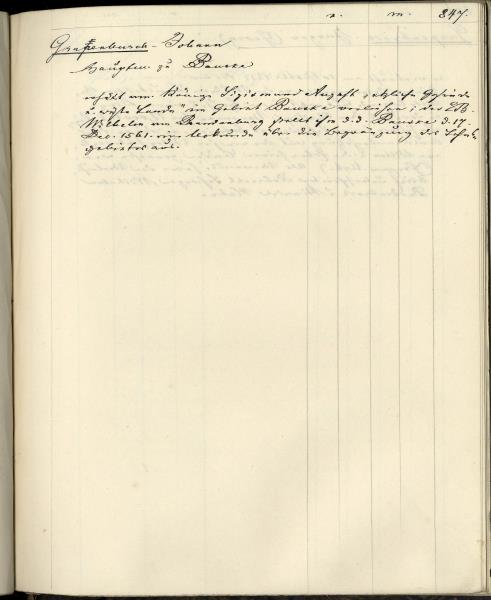 v. m. 247.
Graßenbusch - Johann
Hauptm. zu Bauske
erhält vom Könige Sigismund August etzliche Gesinde
u. wüste Lande im Gebiet Bauske verliehen; der
Wilhelm von Brandenburg stellt ihm d.d. Bauske d. 17.
Dec. 1561 eine Urkunde über die Begränzung des
gebietes aus.